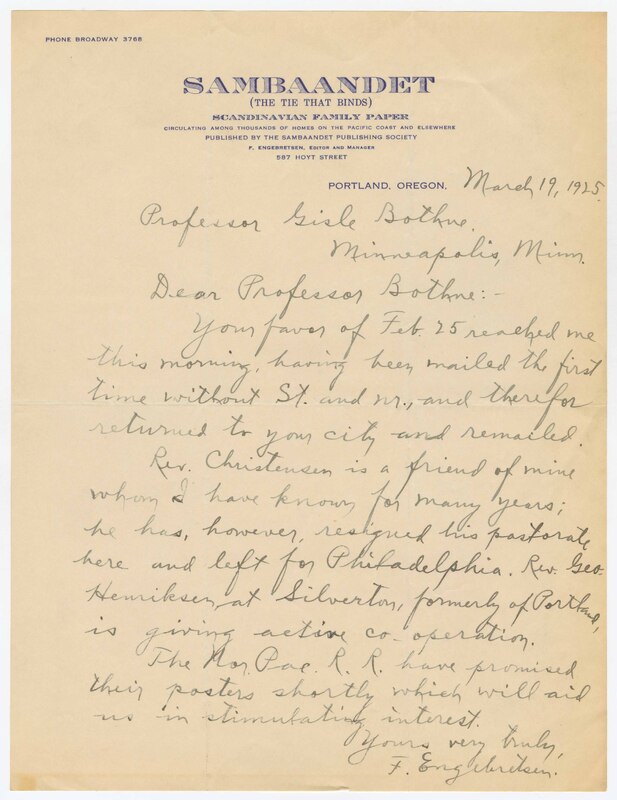 PHONE BROADWAY 3768
SAMBAANDET
(THE TIE THAT BINDS)
SCANDINAVIAN FAMILY PAPER
CIRCULATING AMONG THOUSANDS OF HOMES ON THE PACIFIC COAST AND ELSEWHERE
PUBLISHED BY THE SAMBAANDET PUBLISHING SOCIETY
F. ENGEBRETSEN, EDITOR AND MANAGER
587 HOYT STREET
PORTLAND, OREGON, March 19, 1925.
Professor Gisle Bothne.
Minneapolis, Minn.
Dear Professor Bothne:-
Your favor of Feb. 25 reached me
this morning, having been mailed the first
time without St. and nr., and therefor
returned to your city and remailed.
Rev. Christensen is a friend of mine
whom I have known for many years;
he has, however, resigned his pastorate
here and left for Philadelphia. Rev. Geo.
Henriksen, at Silverton, formerly of Portland,
is giving active co-operation.
The Nor. Pac. R. R. have promised
their posters shortly which will aid
us in stimulating interest.
Yours very truly,
F. Engebretsen.